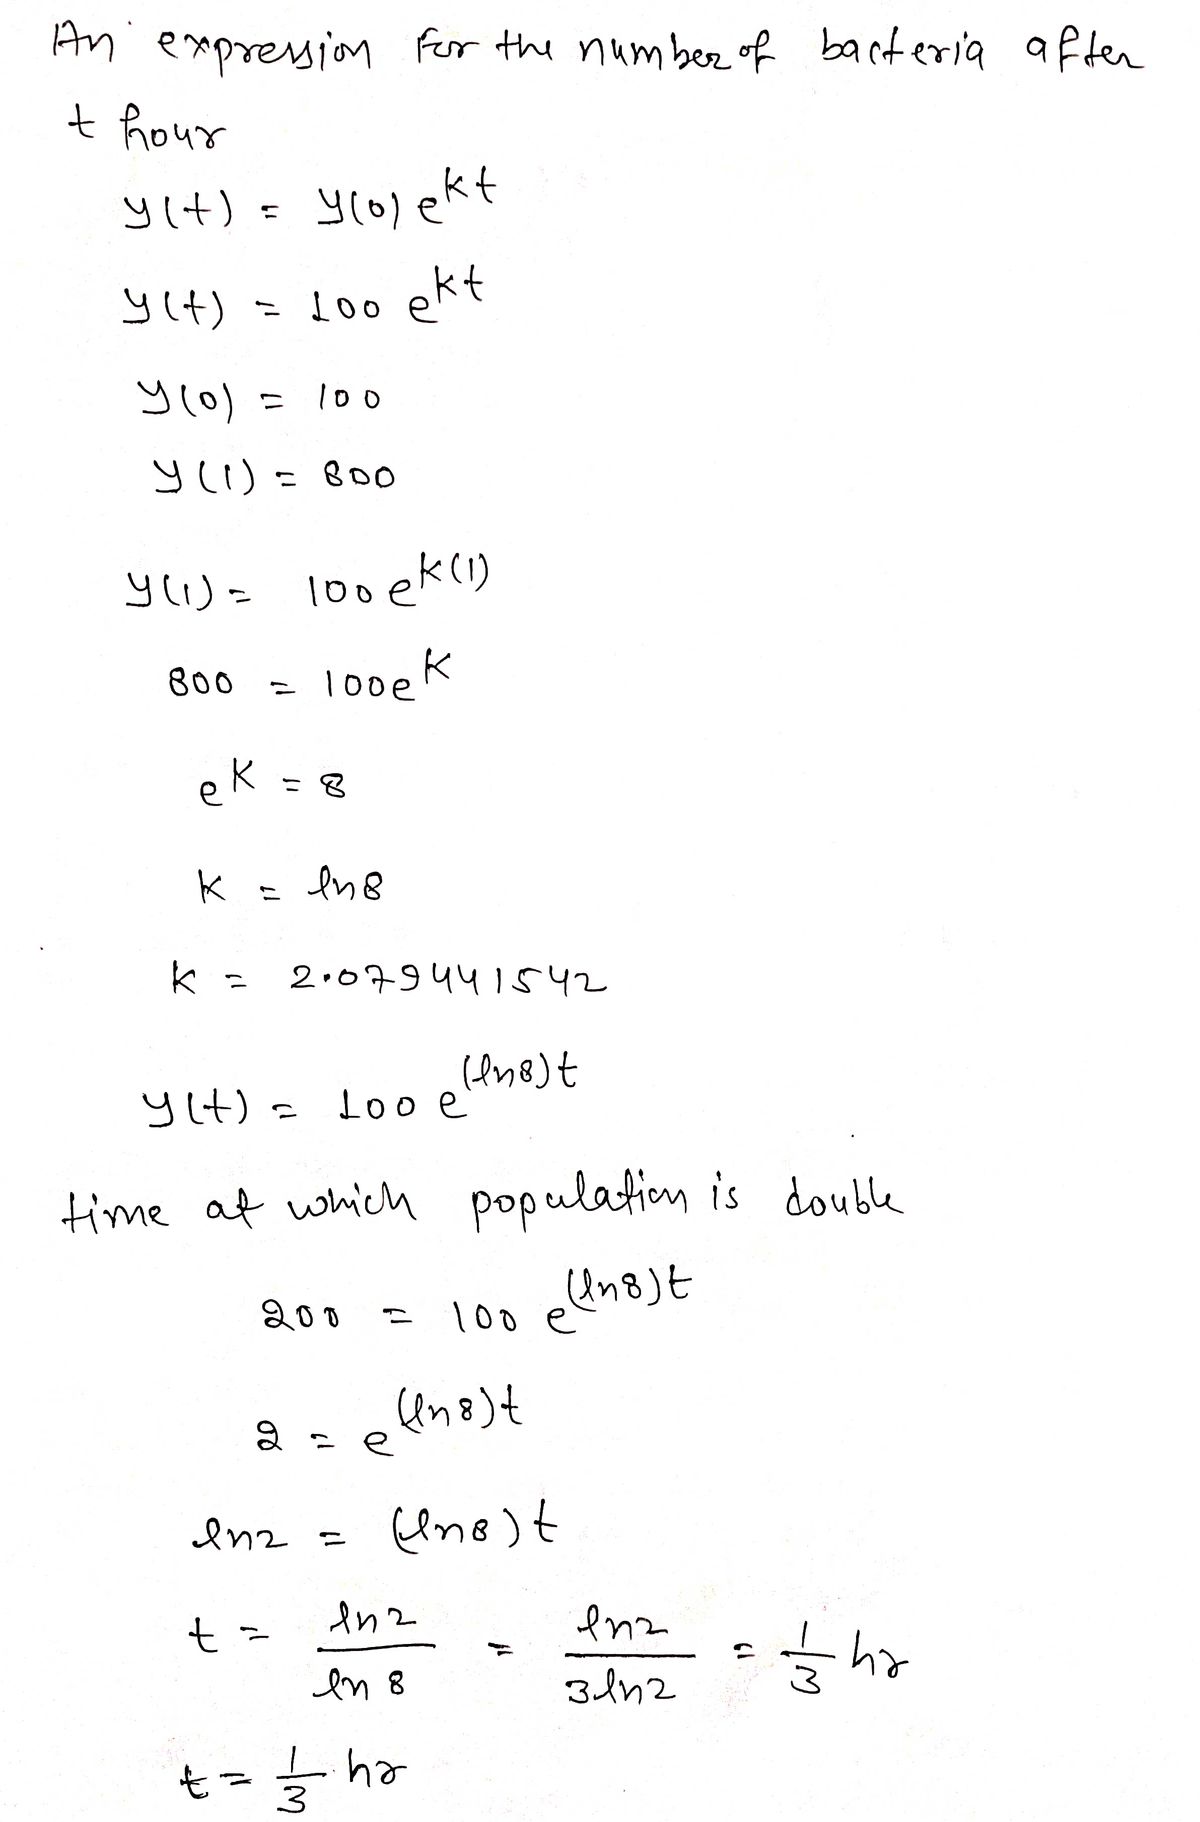 An expression for the number of bacteria after
t hour
y(t) = y(0) e^kt
y(t) = 100 e^kt
y(0) = 100
y(1) = 800
y(1) = 100 e^k(1)
800 = 100e^k
e^k = 8
k = ln8
k = 2.079441542
y(t) = 100 e^(ln8)t
time at which population is double
200 = 100 e^(ln8)t
2 = e^(ln8)t
ln2 = (ln8)t
t = ln2/ln8 = ln2/3ln2 = 1/3 hr
t = 1/3 hr